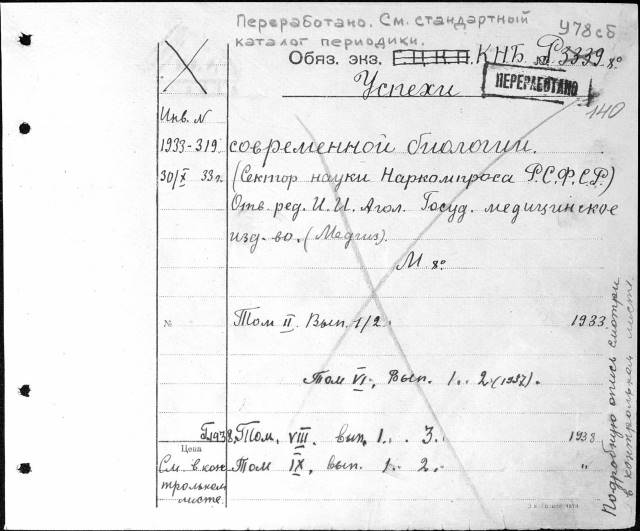 Переработано. См. стандартный
каталог периодики.
У78сб
Обяз. экз. Е.Ц.К.П. К.Н.Б. № Р3339 8º
Успехи
ПЕРЕРАБОТАНО
140
Инв. N
1933-319. современной биологии.
30/X 33г. (Сектор науки Наркомпроса Р.С.Ф.С.Р.)
Отв. ред. И. И. Агол. Госуд. медицинское
изд-во. (Медгиз).
М 8º
№ Том II. Вып. 1/2. 1933.
Том VI, Вып. 1. 2. (1937).
1938, Том, VIII. вып. 1. 3. 1938
Цена
См. в кон Том IX, вып. 1. 2. "
трольном
листе.
Подробную опись смотри
в контрольном листе